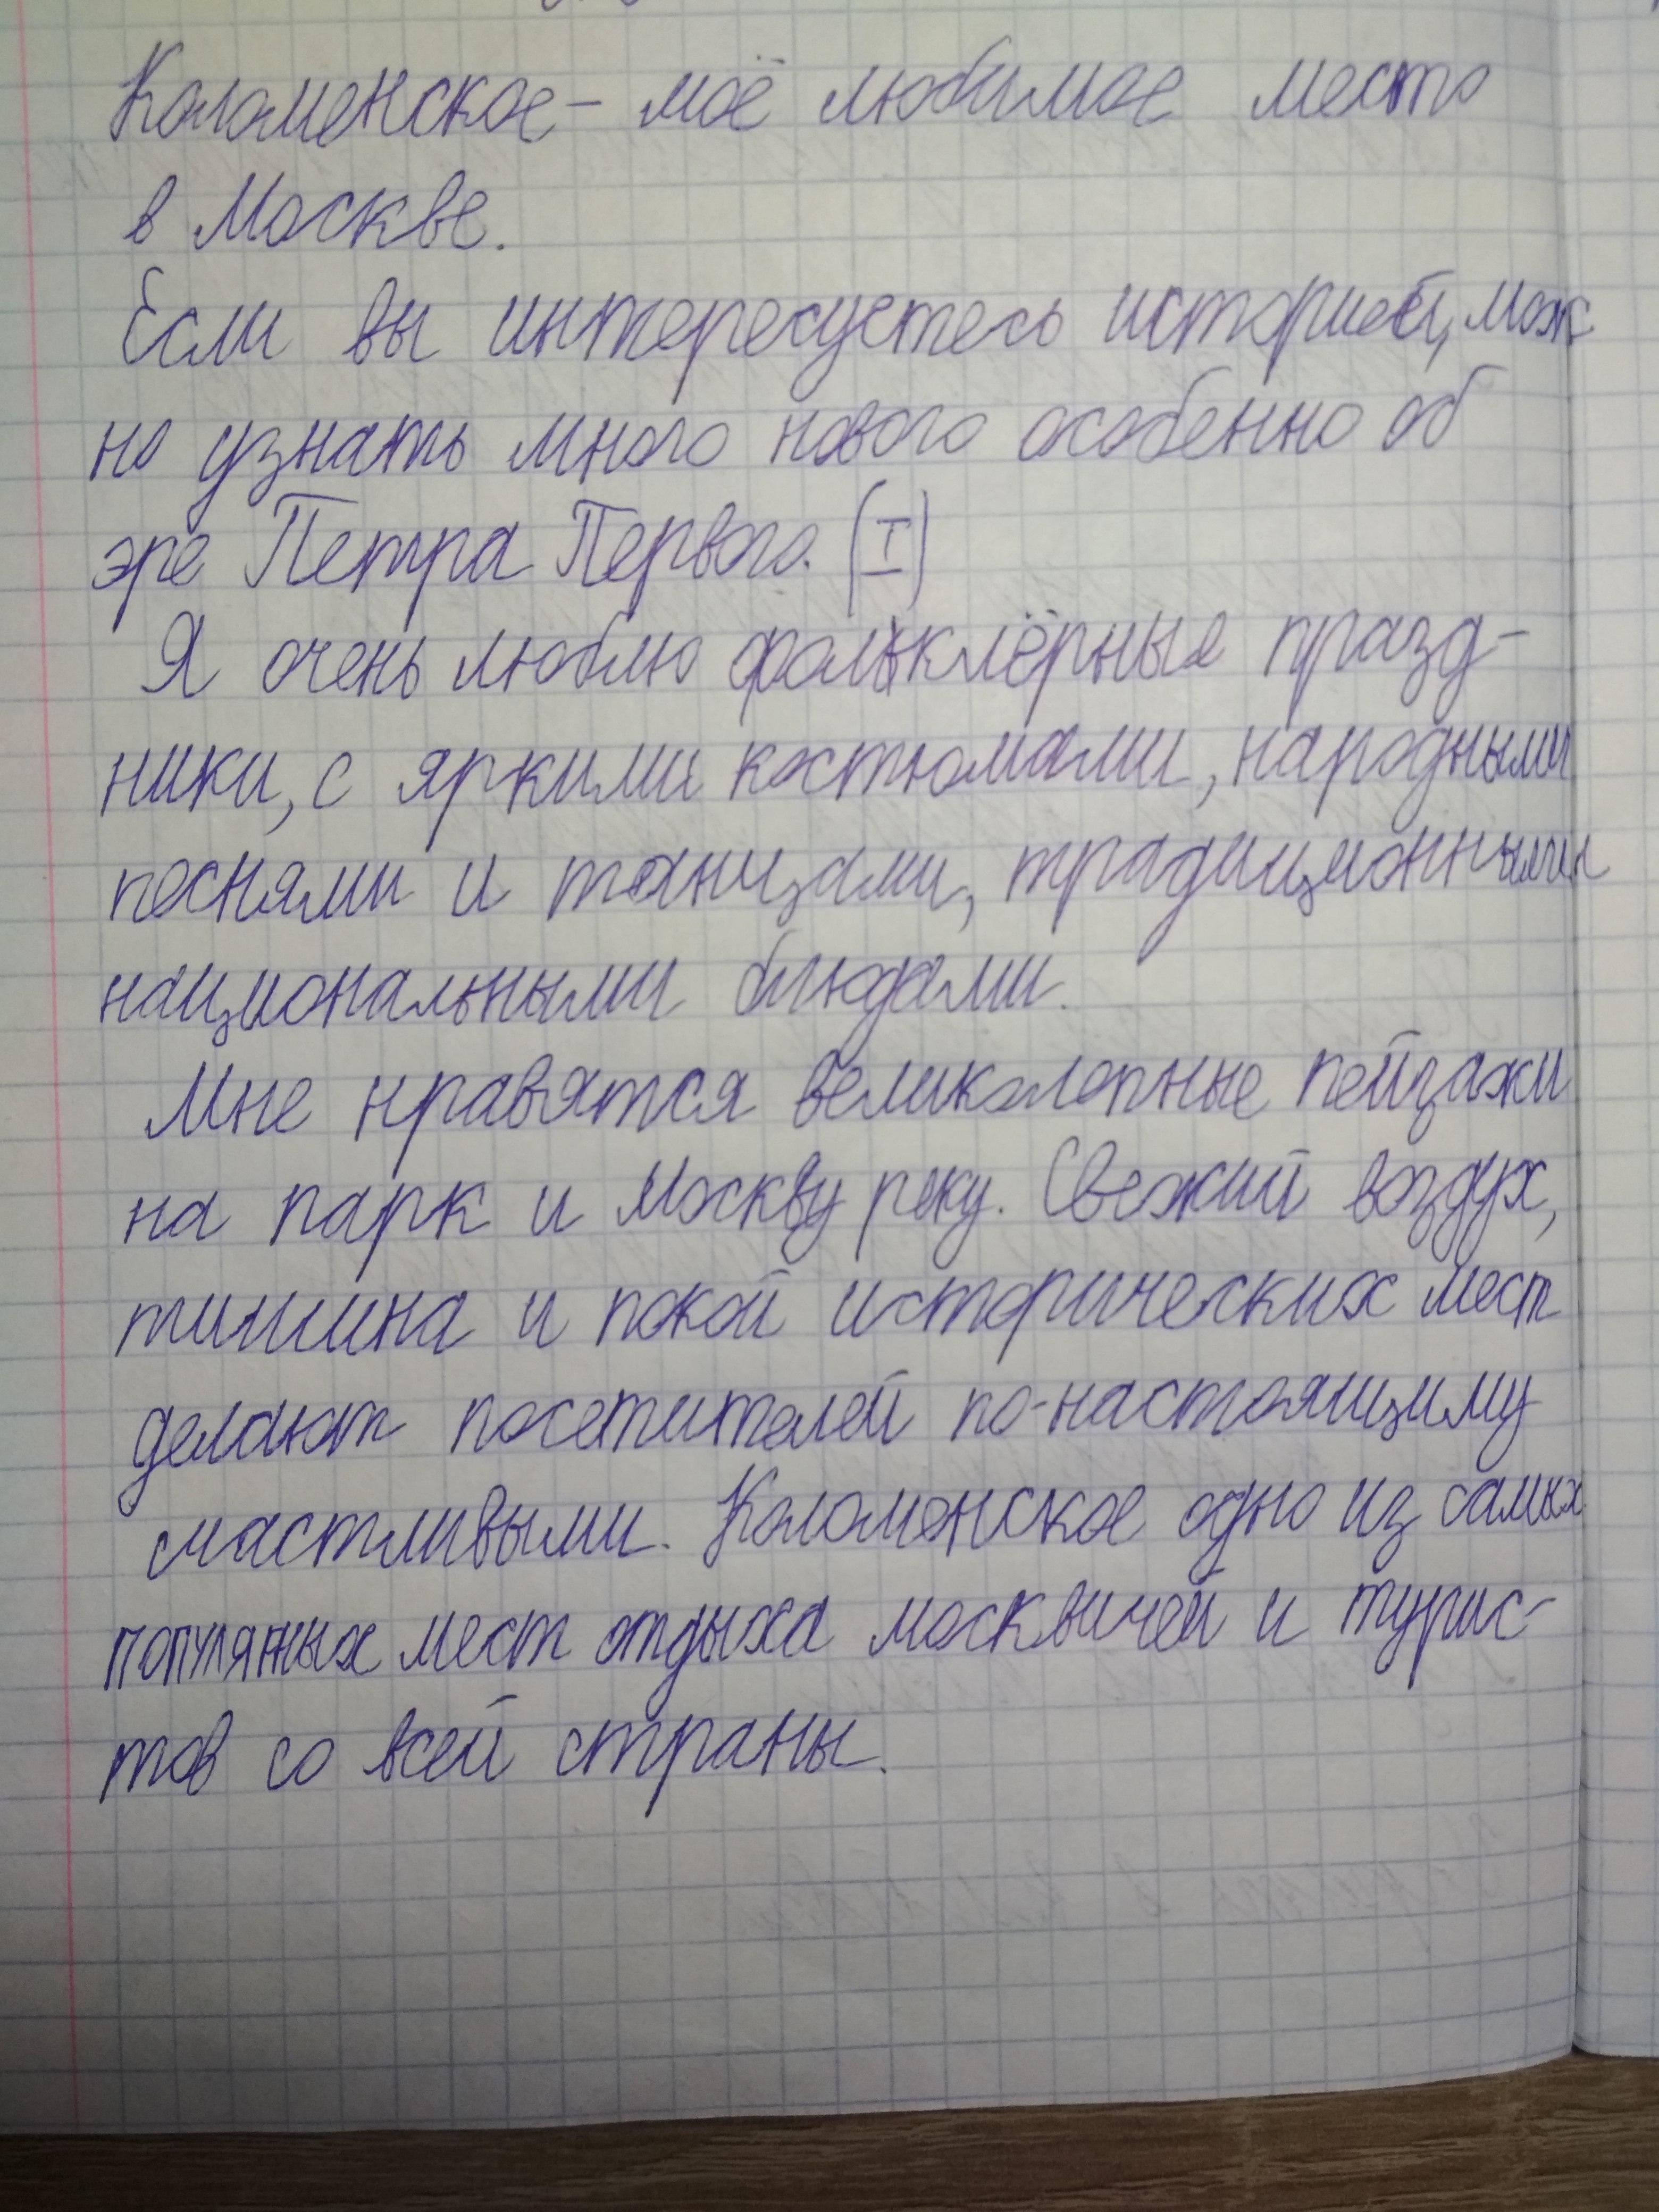 Коломенское – моё любимое место
в Москве.
Если вы интересуетесь историей, мож
но узнать много нового особенно об
эре Петра Первого. (I)
Я очень люблю фольклёрные празд-
ники, с яркими костюмами, народными
песнями и танцами, традиционными
национальными блюдами.
Мне нравятся великолепные пейзажи
на парк и Москву реку. Свежий воздух,
тишина и покой исторических мест
делают посетителей по-настоящиму
счастливыми. Коломенское одно из самых
популяных мест отдыха москвичей и турис-
тов со всей страны.